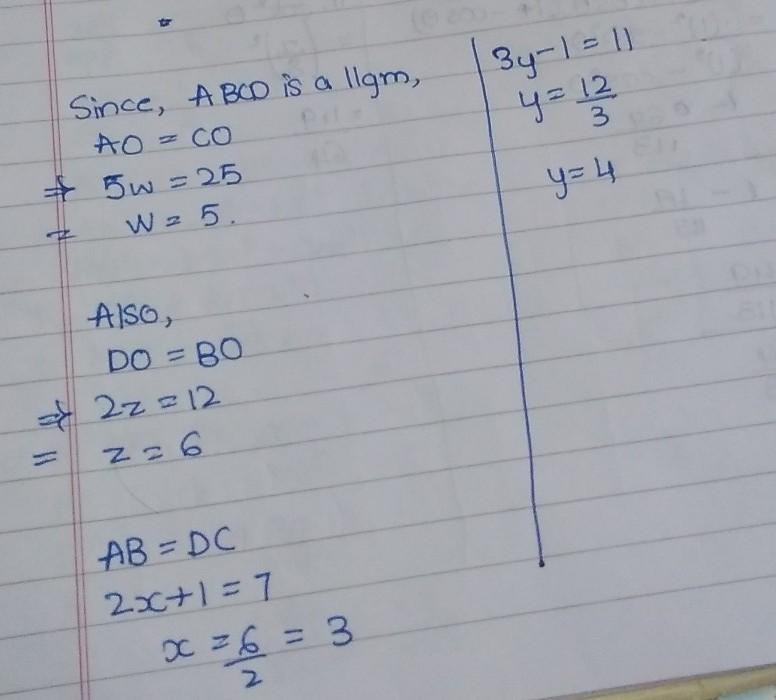 Since, ABCD is a llgm,
AO = CO
⇒ 5w = 25
= w = 5.
Also,
DO = BO
⇒ 2z = 12
= z = 6
AB = DC
2x+1 = 7
x = 6/2 = 3
3y-1 = 11
y = 12/3
y = 4